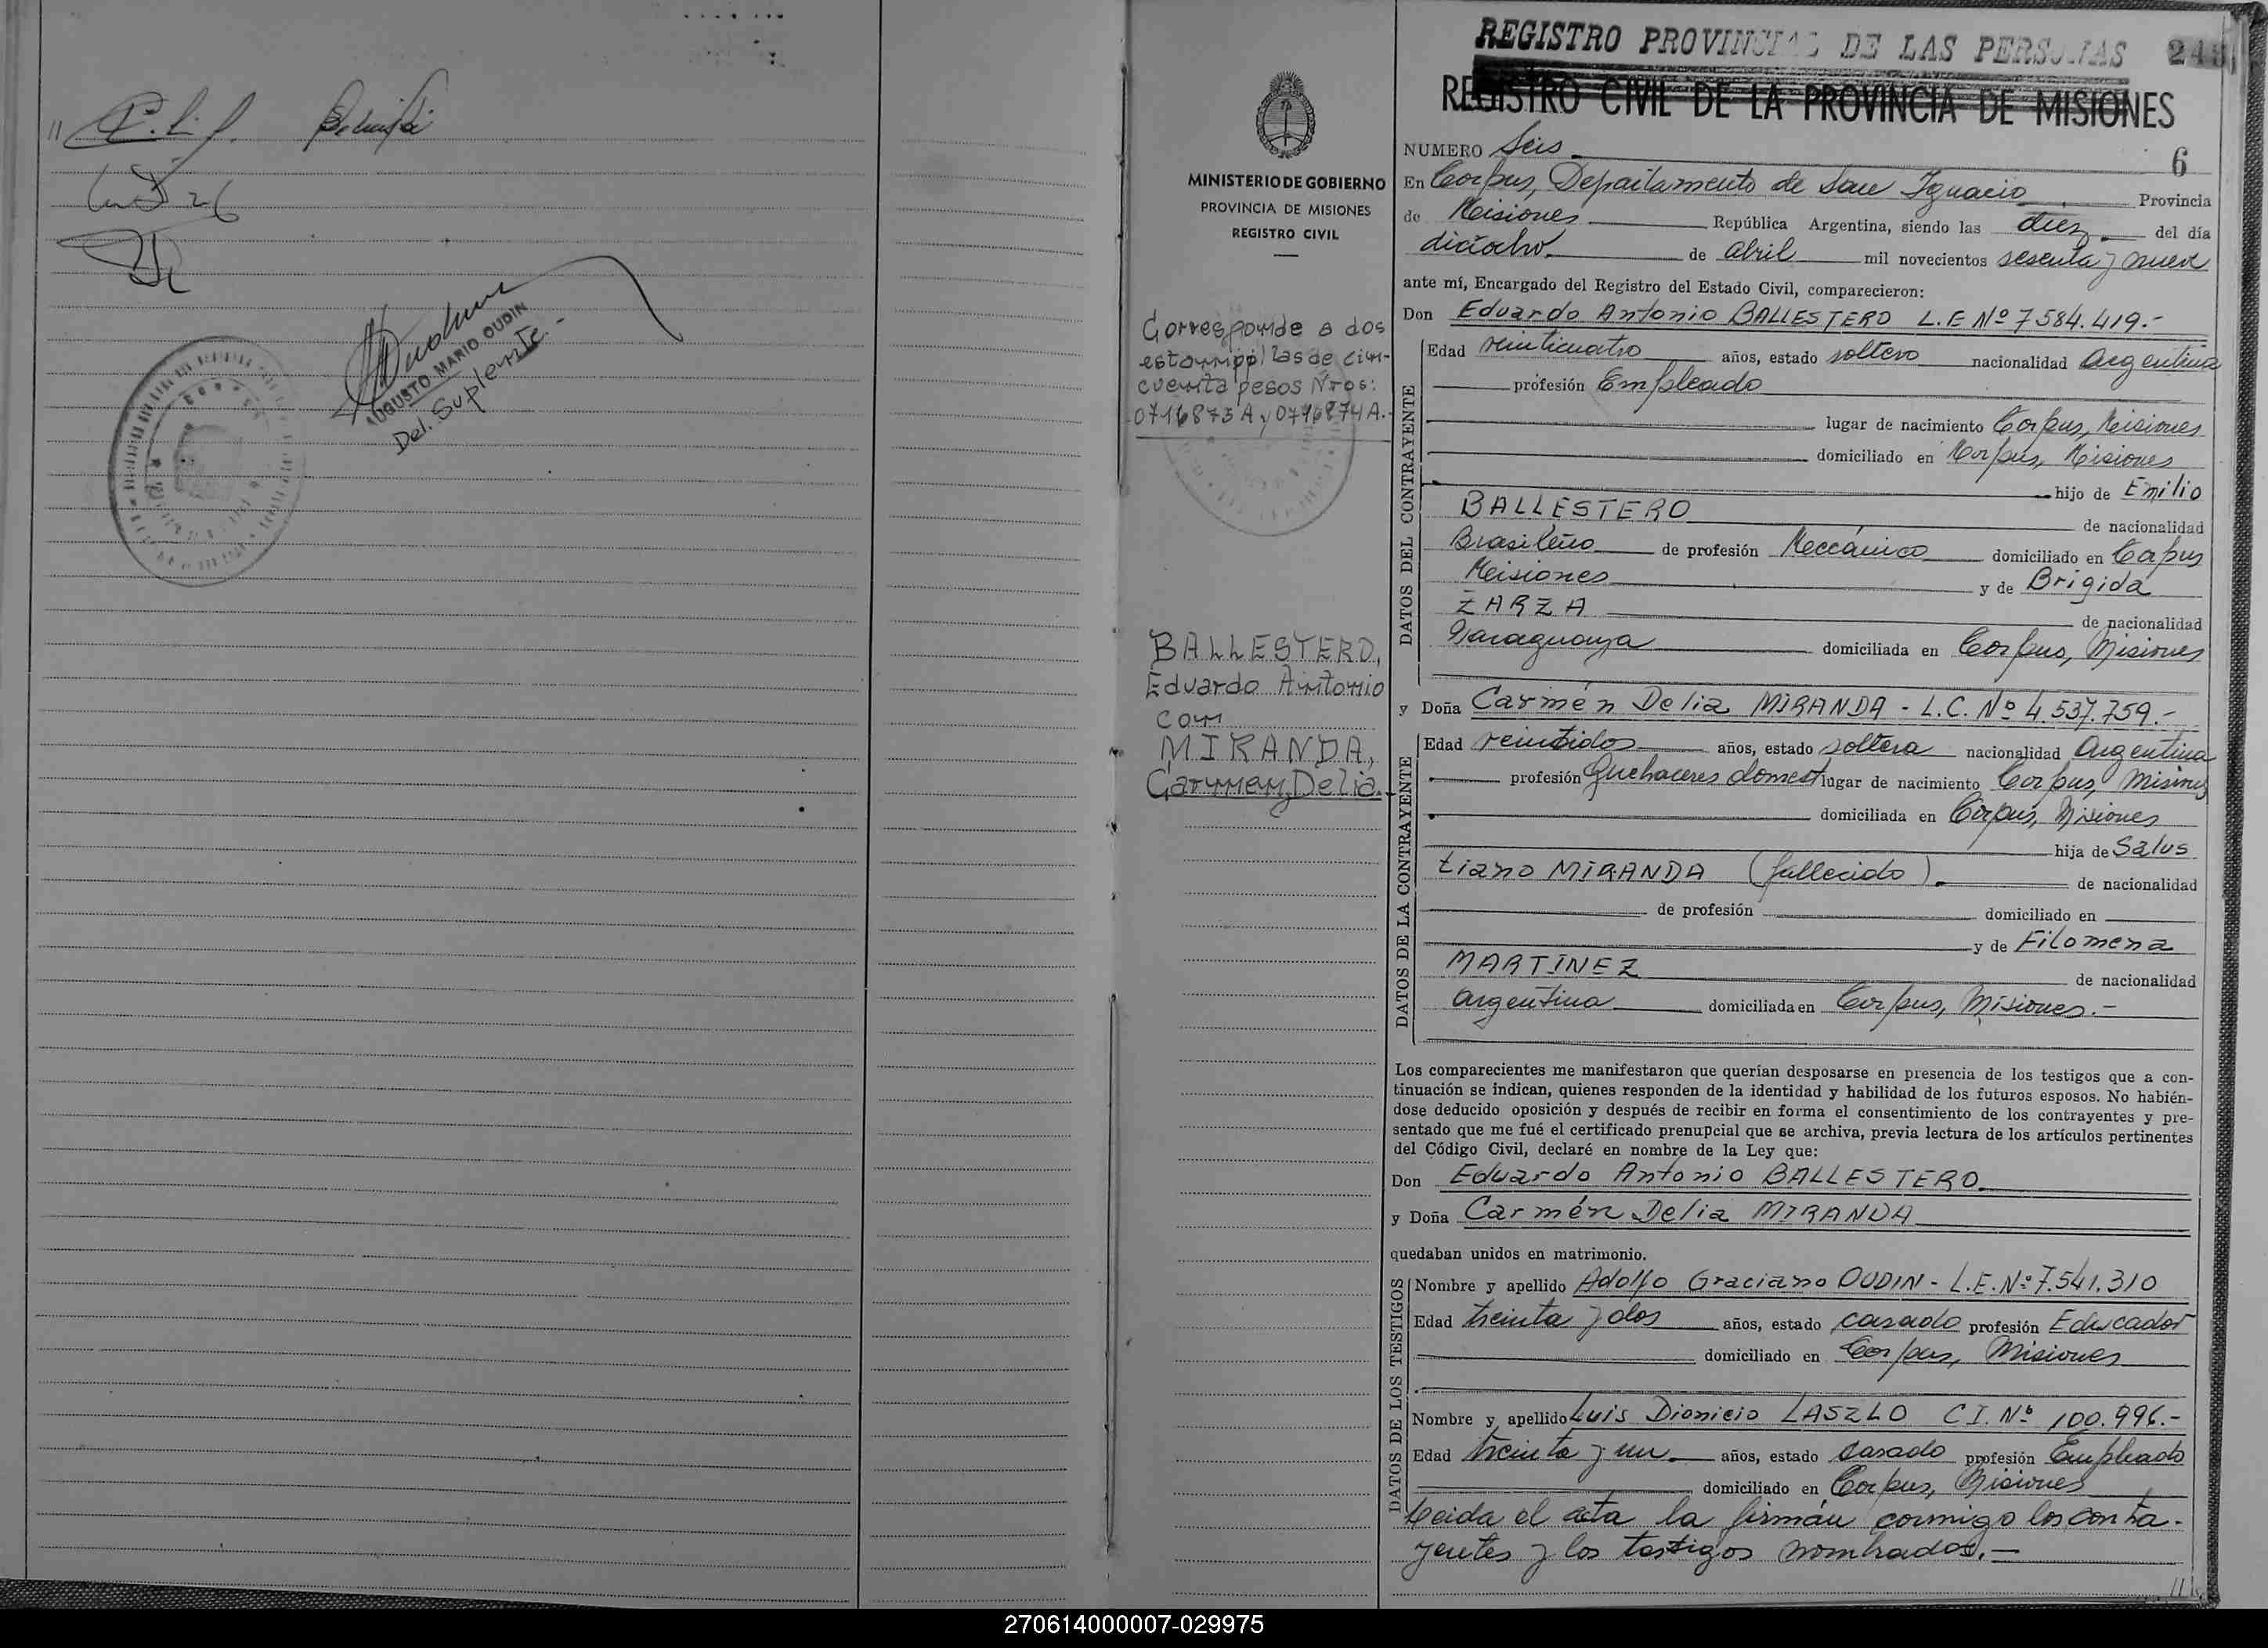 AUGUSTO MARIO OUDIN
Del. Suplente.-
MINISTERIO DE GOBIERNO
PROVINCIA DE MISIONES
REGISTRO CIVIL
Corresponde a dos
estampillas de cin-
cuenta pesos Nros:
0716873 A y 0716874 A.-
BALLESTERO,
Eduardo Antonio
con
MIRANDA,
Carmen Delia.-
REGISTRO PROVINCIAL DE LAS PERSONAS
REGISTRO CIVIL DE LA PROVINCIA DE MISIONES
NUMERO Seis 6
En Corpus, Departamento de San Ignacio Provincia
de Misiones República Argentina, siendo las diez del día
dieciocho de abril mil novecientos sesenta y nueve
ante mí, Encargado del Registro del Estado Civil, comparecieron:
Don Eduardo Antonio BALLESTERO L.E Nº 7584.419.-
DATOS DEL CONTRAYENTE
Edad veinticuatro años, estado soltero nacionalidad Argentina
profesión Empleado
lugar de nacimiento Corpus, Misiones
domiciliado en Corpus, Misiones
hijo de Emilio
BALLESTERO de nacionalidad
Brasileño de profesión Mecánico domiciliado en Corpus
Misiones y de Brigida
ZARZA de nacionalidad
Paraguaya domiciliada en Corpus, Misiones
y Doña Carmén Delia MIRANDA - L.C. Nº 4.537.759.-
DATOS DE LA CONTRAYENTE
Edad veintidos años, estado soltera nacionalidad Argentina
profesión Quehaceres domest lugar de nacimiento Corpus, Misiones
domiciliada en Corpus, Misiones
hija de Salus
tiano MIRANDA (fallecido). de nacionalidad
de profesión domiciliado en
y de Filomena
MARTINEZ de nacionalidad
argentina domiciliada en Corpus, Misiones.-
Los comparecientes me manifestaron que querían desposarse en presencia de los testigos que a con-
tinuación se indican, quienes responden de la identidad y habilidad de los futuros esposos. No habién-
dose deducido oposición y después de recibir en forma el consentimiento de los contrayentes y pre-
sentado que me fué el certificado prenupcial que se archiva, previa lectura de los artículos pertinentes
del Código Civil, declaré en nombre de la Ley que:
Don Eduardo Antonio BALLESTERO
y Doña Carmén Delia MIRANDA
quedaban unidos en matrimonio.
DATOS DE LOS TESTIGOS
Nombre y apellido Adolfo Graciano OUDIN - L.E. Nº 7.541.310
Edad treinta y dos años, estado casado profesión Educador
domiciliado en Corpus, Misiones
Nombre y apellido Luis Dionicio LASZLO C I. Nº 100.996.-
Edad treinta y un años, estado casado profesión Empleado
domiciliado en Corpus, Misiones
Leida el acta la firmán conmigo los contra-
yentes y los testigos nombrados.-
270614000007-029975